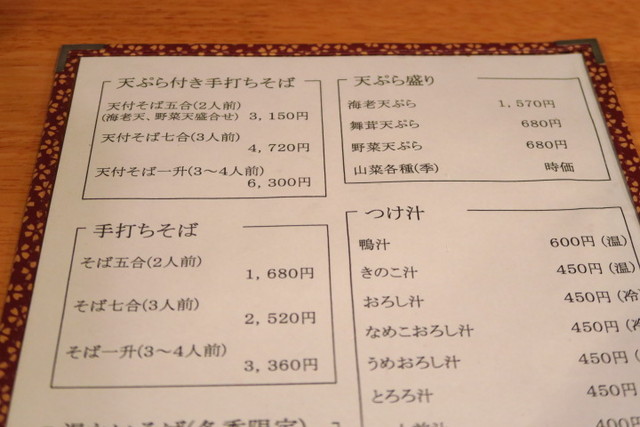 天ぷら付き手打ちそば
天付そば五合(2人前)
(海老天、野菜天盛合せ) 3,150円
天付そば七合(3人前)
4,720円
天付そば一升(3～4人前)
6,300円
手打ちそば
そば五合(2人前)
1,680円
そば七合(3人前)
2,520円
そば一升(3～4人前)
3,360円
天ぷら盛り
海老天ぷら 1,570円
舞茸天ぷら 680円
野菜天ぷら 680円
山菜各種(季) 時価
つけ汁
鴨汁 600円 (温)
きのこ汁 450円 (温)
おろし汁 450円 (冷)
なめこおろし汁 450円 (冷
うめおろし汁 450円 (
とろろ汁 450円
400円